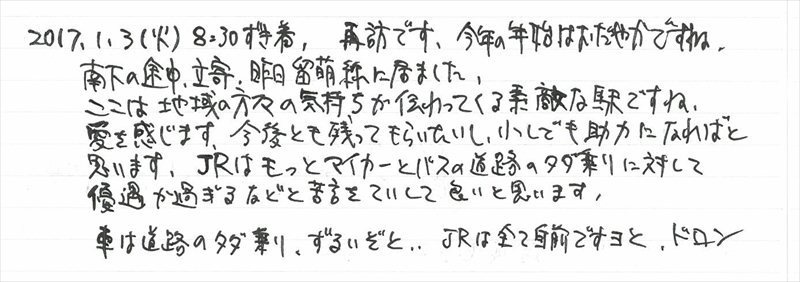 2017.1.3(火) 8:30ｽﾞ着, 再訪です、今年の年始はおだやかですね。
南下の途中、立寄、昨日留萌線に居ました、
ここは地域の方々の気持ちが伝わってくる素敵な駅ですね、
愛を感じます、今後とも残ってもらいたいし、小しでも助力になればと
思います、JRはもっとマイカーとバスの道路のタダ乗りに対して
優遇が過ぎるなどと苦言をていして良いと思います,
車は道路のタダ乗り、ずるいぞと.. JRは全て自前ですヨと、ドロン